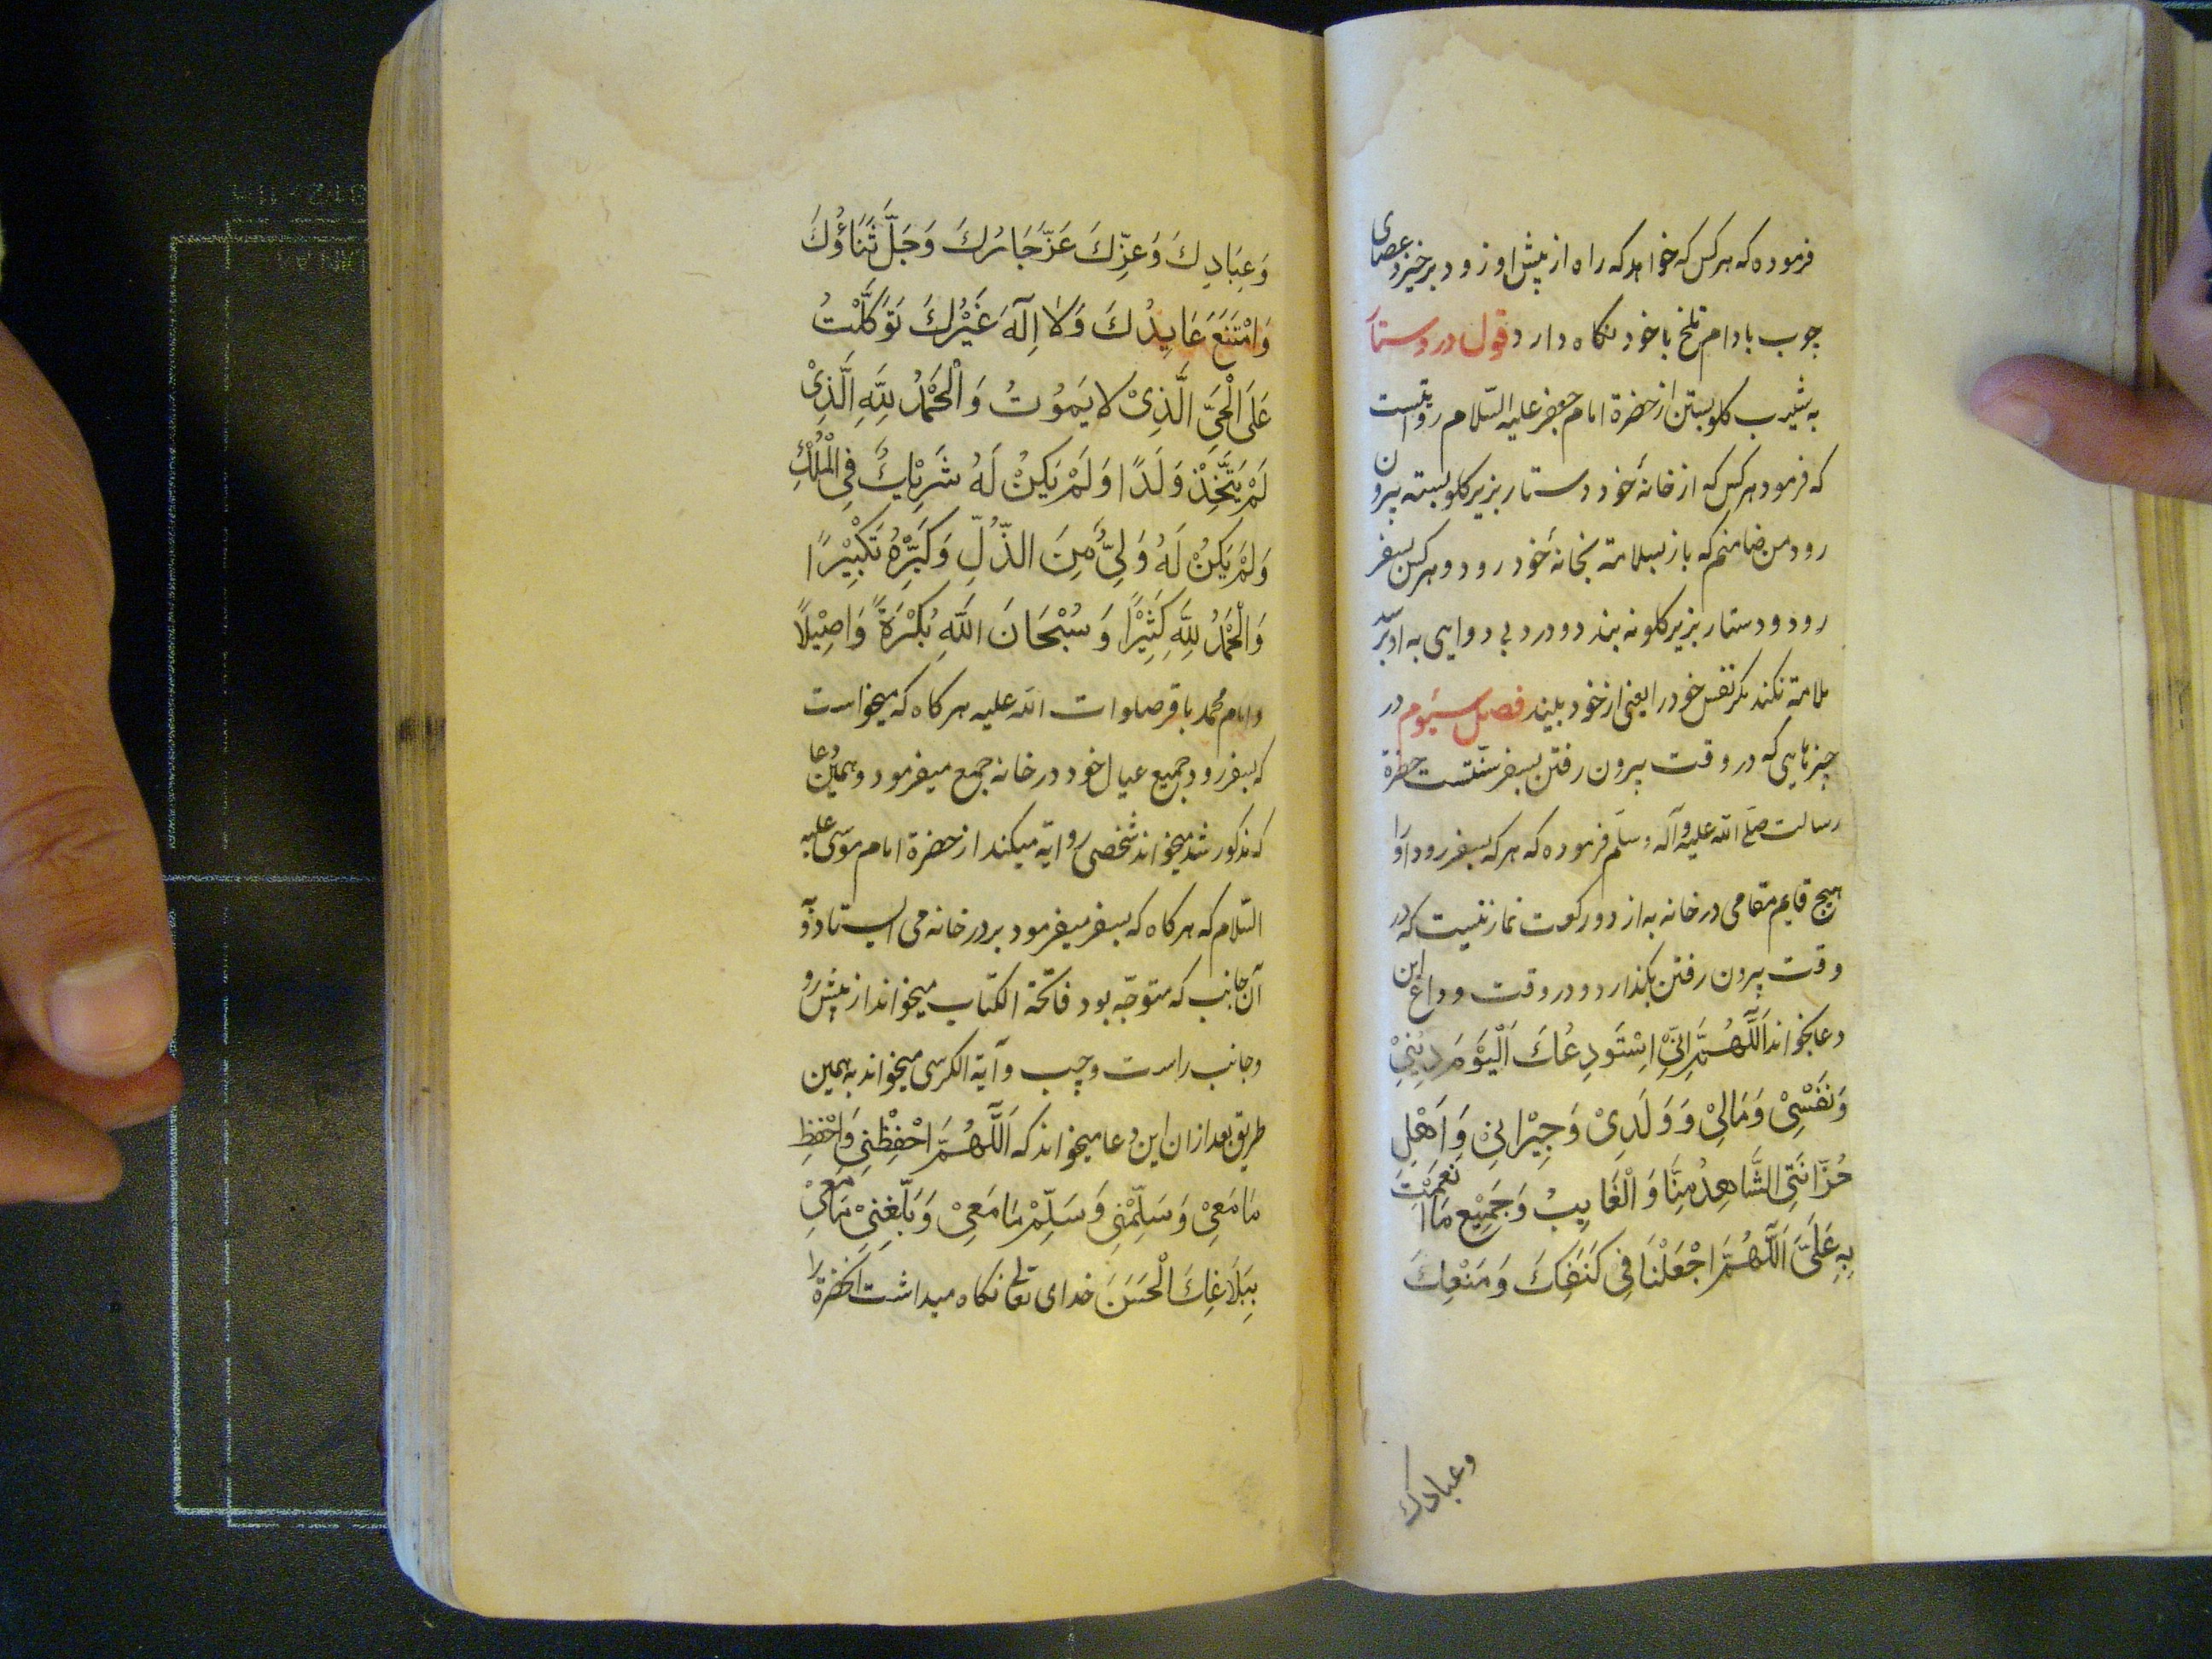 فرموده که هر کس که خواهد که راه از پیش او زود برخیزد عصای
چوب بادام تلخ با خود نگاه دارد قول در دستار
به شیب کلو بستن از حضرة امام جعفر علیه السّلام روایتست
که فرمود هر کس که از خانهٔ خود دستار بزیر کلو بسته بیرون
رود من ضامنم که باز بسلامة بخانهٔ خود رود و هر کس بسفر
رود و دستار بزیر کلو نه بندد و درد بی دوایی به او برسد
ملامة نکند مکر نفس خود را یعنی از خود بیند فصل سیوم در
چیزهایی که در وقت بیرون رفتن بسفر سنّتست حضرة
رسالت صلی الله علیه وآله وسلم فرموده که هر که بسفر رود او را
هیچ قایم مقامی در خانه به از دو رکعت نماز نیست که در
وقت بیرون رفتن بکذارد و در وقت وداع این
دعا بخواند اَللَّهُمَّ اِنِّیْ اِسْتَودِعُكَ اَلْیَوْمَ دِیْنِیْ
وَنَفْسِیْ وَمَالِیْ وَ وَلَدِیْ وَجِیْرَانِیْ وَ اَهْلِ
حُزَانَتِی الشَّاهِدُ مِنَّا وَ الْغَایِبُ وَ جَمِیْعِ مَا اَنْعَمْتَ
بِهِ عَلَیَّ اَللَّهُمَّ اجْعَلْنَا فِی كَنَفِكَ وَ مَنْعِكَ
وعبادك
وَعِبَادِكَ وَعِزِّكَ عَزَّجَارُكَ وَجَلَّ ثَنَاؤُكَ
وَامْتَنَعَ عَایِذُكَ وَلَا اِلَهَ غَیْرُكَ تَوَكَّلْتُ
عَلَی الْحَیِّ الَّذِیْ لَا یَمُوْتُ وَالْحَمْدُ لِلَّهِ الَّذِیْ
لَمْ یَتَّخِذْ وَلَدًا وَلَمْ یَكُنْ لَهُ شَرِیْكٌ فِی الْمُلْكِ
وَلَمْ یَكُنْ لَهُ وَلِیٌّ مِنَ الذُّلِّ وَكَبِّرْهُ تَكْبِیْرًا
وَالْحَمْدُ لِلَّهِ كَثِیْرًا وَسُبْحَانَ اللَّهِ بُكْرَةً وَاَصِیْلًا
و امام محمد باقر صلوات الله علیه هرکاه که میخواست
که بسفر رود جمیع عیال خود در خانه جمع میفرمود و همین دعا
که مذکور شد میخواند شخصی روایة میکند از حضرة امام موسی علیه
السّلام که هرکاه که بسفر میفرمود بر در خانه می ایستاد و
آن جانب که متوجّه بود فاتحة الکتاب میخواند از پیش رو
و جانب راست و چپ و آیة الکرسی میخواند به همین
طریق بعد از ان این دعا میخواند که اَللَّهُمَّ احْفِظْنِی وَاحْفِظْ
مَا مَعِیْ وَسَلِّمْنِی وَسَلِّمْ مَا مَعِیْ وَبَلِّغْنِیْ مَا مَعِیْ
بِبَلَاغِكَ الْحَسَنَ خدای تعالی نکاه میداشت آنحضرة را